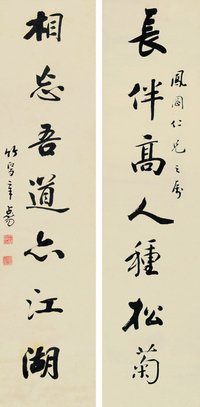 鳳岡仁兄之屬
長伴高人種松菊
相忘吾道亦江湖
竹